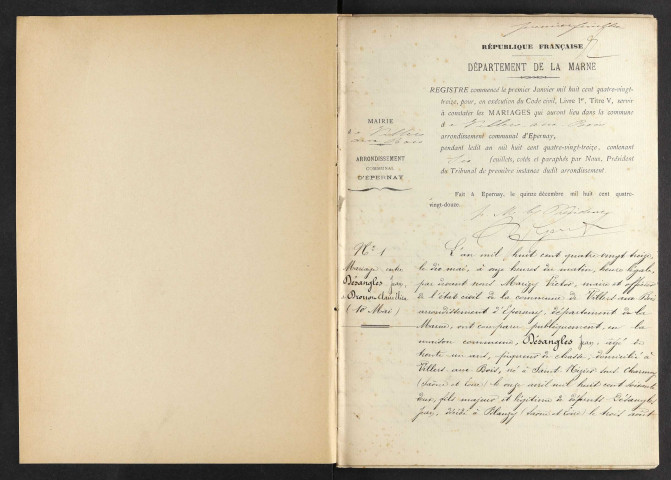 RÉPUBLIQUE FRANÇAISE
DÉPARTEMENT DE LA MARNE
REGISTRE commencé le premier Janvier mil huit cent quatre-vingt-
treize, pour, en exécution du Code civil, Livre Ier, Titre V, servir
à constater les MARIAGES qui auront lieu dans la commune
d e Villers aux Bois
arrondissement communal d'Epernay,
pendant ledit an mil huit cent quatre-vingt-treize, contenant
feuillets, cotés et paraphés par Nous, Président
du Tribunal de première instance dudit arrondissement
Fait à Epernay, le quinze décembre mil huit cent quatre-
vingt-douze.
MAIRIE
de Villers
aux Bois
ARRONDISSEMENT
COMMUNAL
D'EPERNAY
No 1
Mariage entre
Désangles Jean,
(10 Mai)
L'an mil huit cent quatre vingt treize,
le dix mai, à onze heures du matin, heure légale,
par devant nous Victor, maire et officier
de l'état civil de la commune de Villers aux Bois
arrondissement d'Epernay, département de la
Marne, ont comparu publiquement en la
maison commune, Désangles Jean, âgé de
trente un ans, de chasse, domicilié à
Villers aux Bois, né à Saint
(Saône et Loire) le onze avril mil huit cent soixante
deux, fils majeur et légitime de défunts Désangles
Jean, décédé à Blanzy (Saône et Loire) le trois août